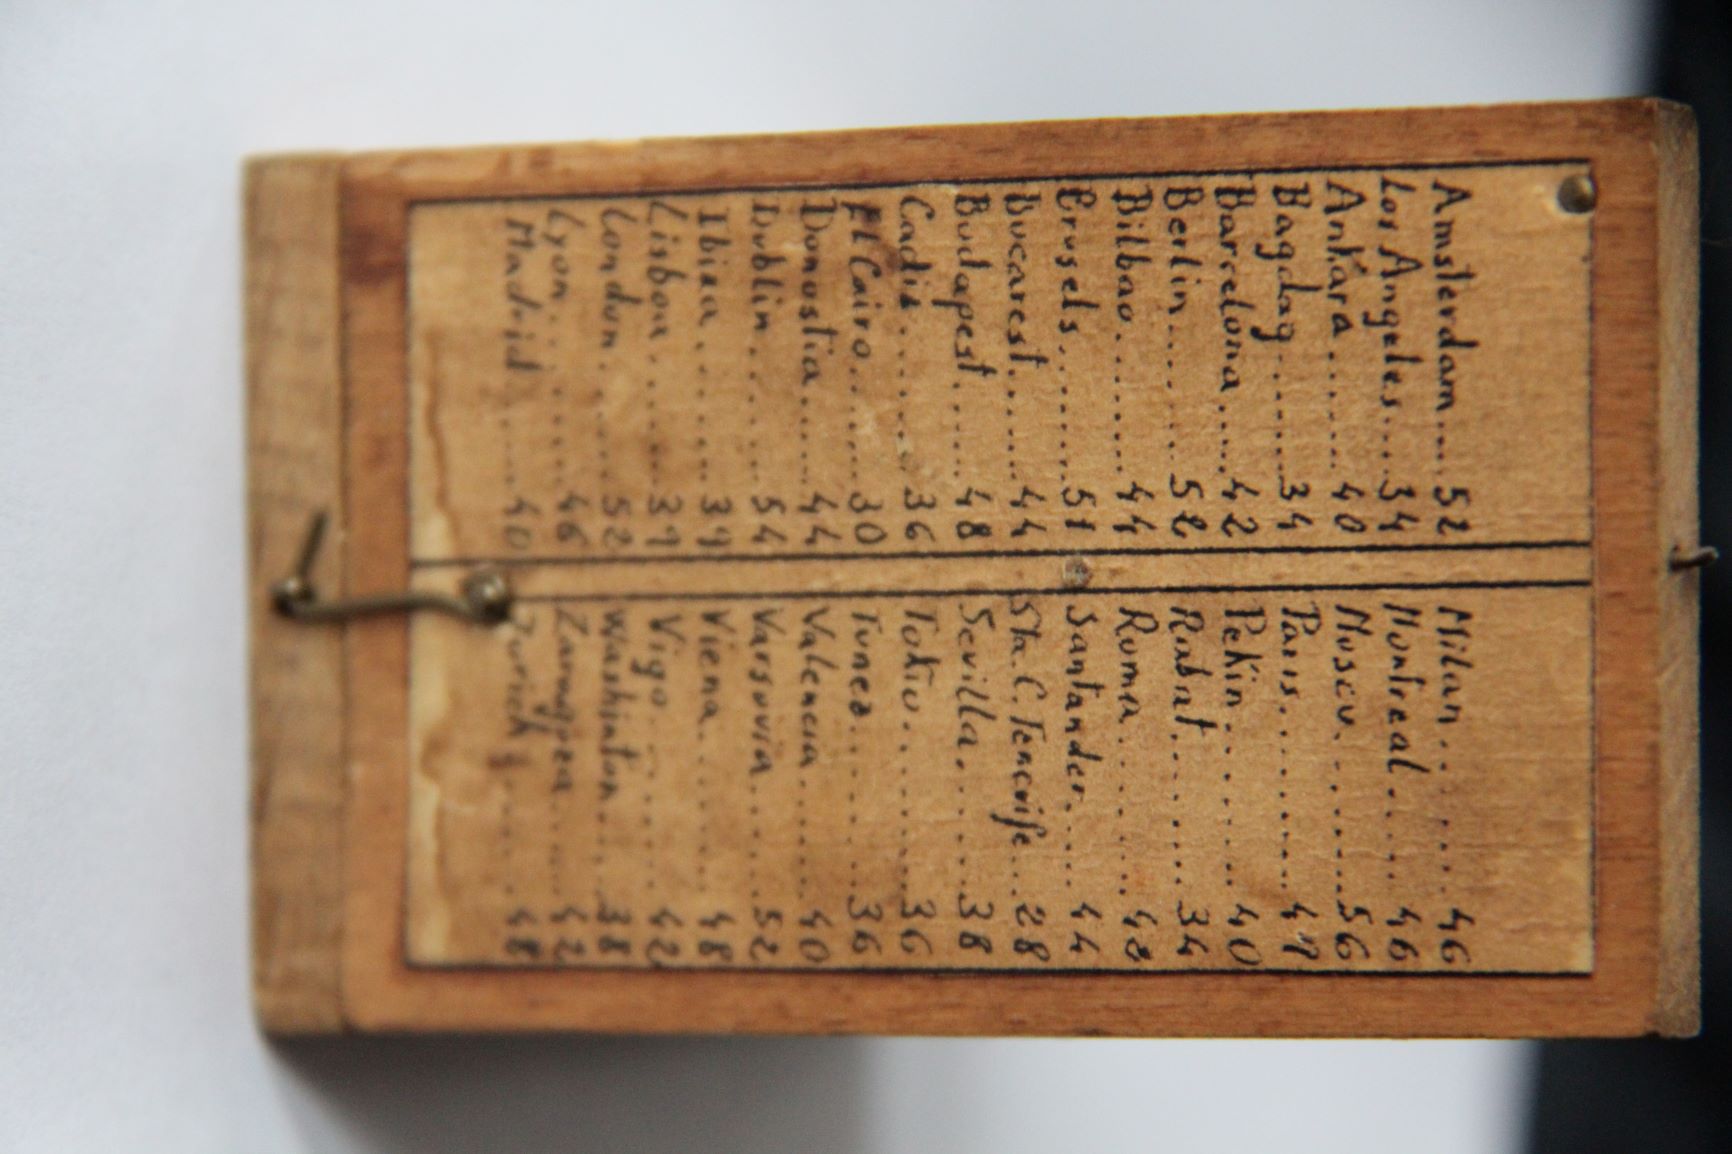 Amsterdam....52
Los Angeles....34
Ankara......40
Bagdag.......34
Barcelona....42
Berlin........52
Bilbao........44
Brusels.......51
Bucarest.....44
Budapest.....48
Cadiz........36
El Cairo......30
Donostia.....44
Dublin.......54
Ibiza........39
Lisboa.......39
London.......52
Lyon.........46
Madrid......40
Milan.......46
Montreal.....46
Moscu.......56
Paris........49
Pekin.......40
Rabat........34
Roma........42
Santander....44
Sta. C. Tenerife...28
Sevilla......38
Tokio.......36
Tunez.......36
Valencia.....40
Varsovia.....52
Viena.......48
Vigo........42
Washinton....38
Zaragoza.....42
Zurich......48